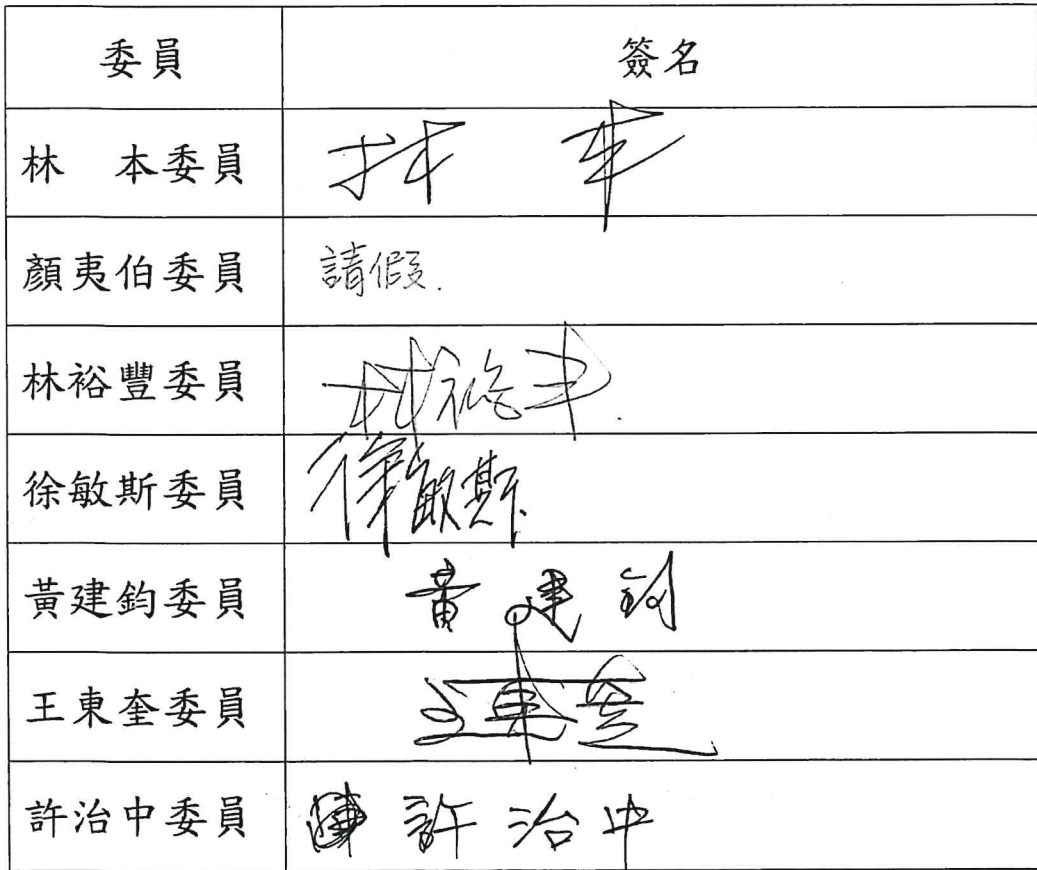 委員 簽名
林 本委員 林 本
顏夷伯委員 請假.
林裕豐委員 林裕丰.
徐敏斯委員 徐敏斯
黃建鈞委員 黃建鈞
王東奎委員 王東奎
許治中委員 許治中